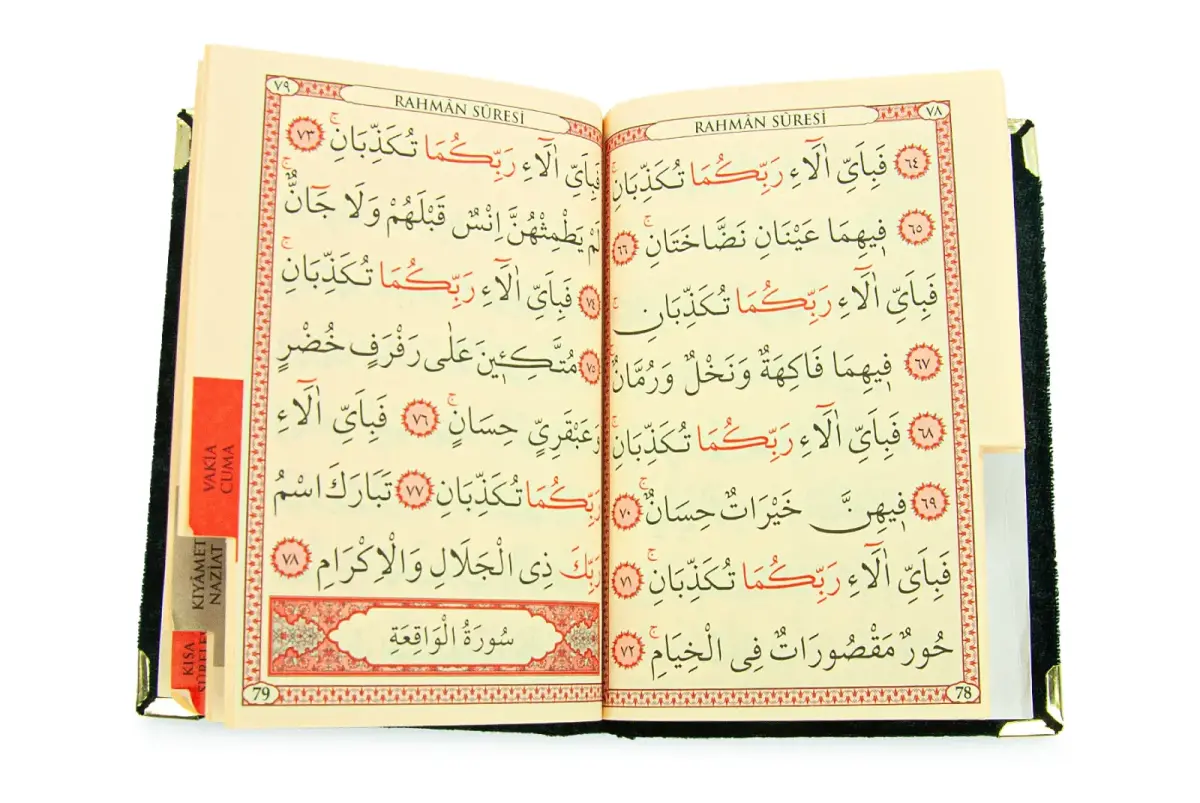 ٧٨
RAHMÂN SÛRESİ
٦٤ فَبِاَيِّ اٰلَٓاءِ رَبِّكُمَا تُكَذِّبَانِۚ
٦٥ فٖيهِمَا عَيْنَانِ نَضَّاخَتَانِۚ ٦٦
فَبِاَيِّ اٰلَٓاءِ رَبِّكُمَا تُكَذِّبَانِۚ
٦٧ فٖيهِمَا فَاكِهَةٌ وَنَخْلٌ وَرُمَّانٌۚ
٦٨ فَبِاَيِّ اٰلَٓاءِ رَبِّكُمَا تُكَذِّبَانِۚ
٦٩ فٖيهِنَّ خَيْرَاتٌ حِسَانٌۚ ٧٠
فَبِاَيِّ اٰلَٓاءِ رَبِّكُمَا تُكَذِّبَانِۚ ٧١
حُورٌ مَقْصُورَاتٌ فِى الْخِيَامِۚ ٧٢
78
٧٩
RAHMÂN SÛRESİ
فَبِاَيِّ اٰلَٓاءِ رَبِّكُمَا تُكَذِّبَانِۚ ٧٣
لَمْ يَطْمِثْهُنَّ اِنْسٌ قَبْلَهُمْ وَلَا جَٓانٌّۚ
٧٤ فَبِاَيِّ اٰلَٓاءِ رَبِّكُمَا تُكَذِّبَانِۚ
٧٥ مُتَّكِـٖٔينَ عَلٰى رَفْرَفٍ خُضْرٍ
وَعَبْقَرِيٍّ حِسَانٍۚ ٧٦ فَبِاَيِّ اٰلَٓاءِ
رَبِّكُمَا تُكَذِّبَانِ ٧٧ تَبَارَكَ اسْمُ
رَبِّكَ ذِى الْجَلَالِ وَالْاِكْرَامِ ٧٨
سُورَةُ الْوَاقِعَةِ
79
VAKIA
CUMA
KIYÂMET
NAZİAT
KISA